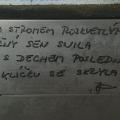 STROMEM ROZKVETLÝM
ČNÝ SEN SNILA
S DECHEM POSLEDN
KLÍČKU SE SKRYLA